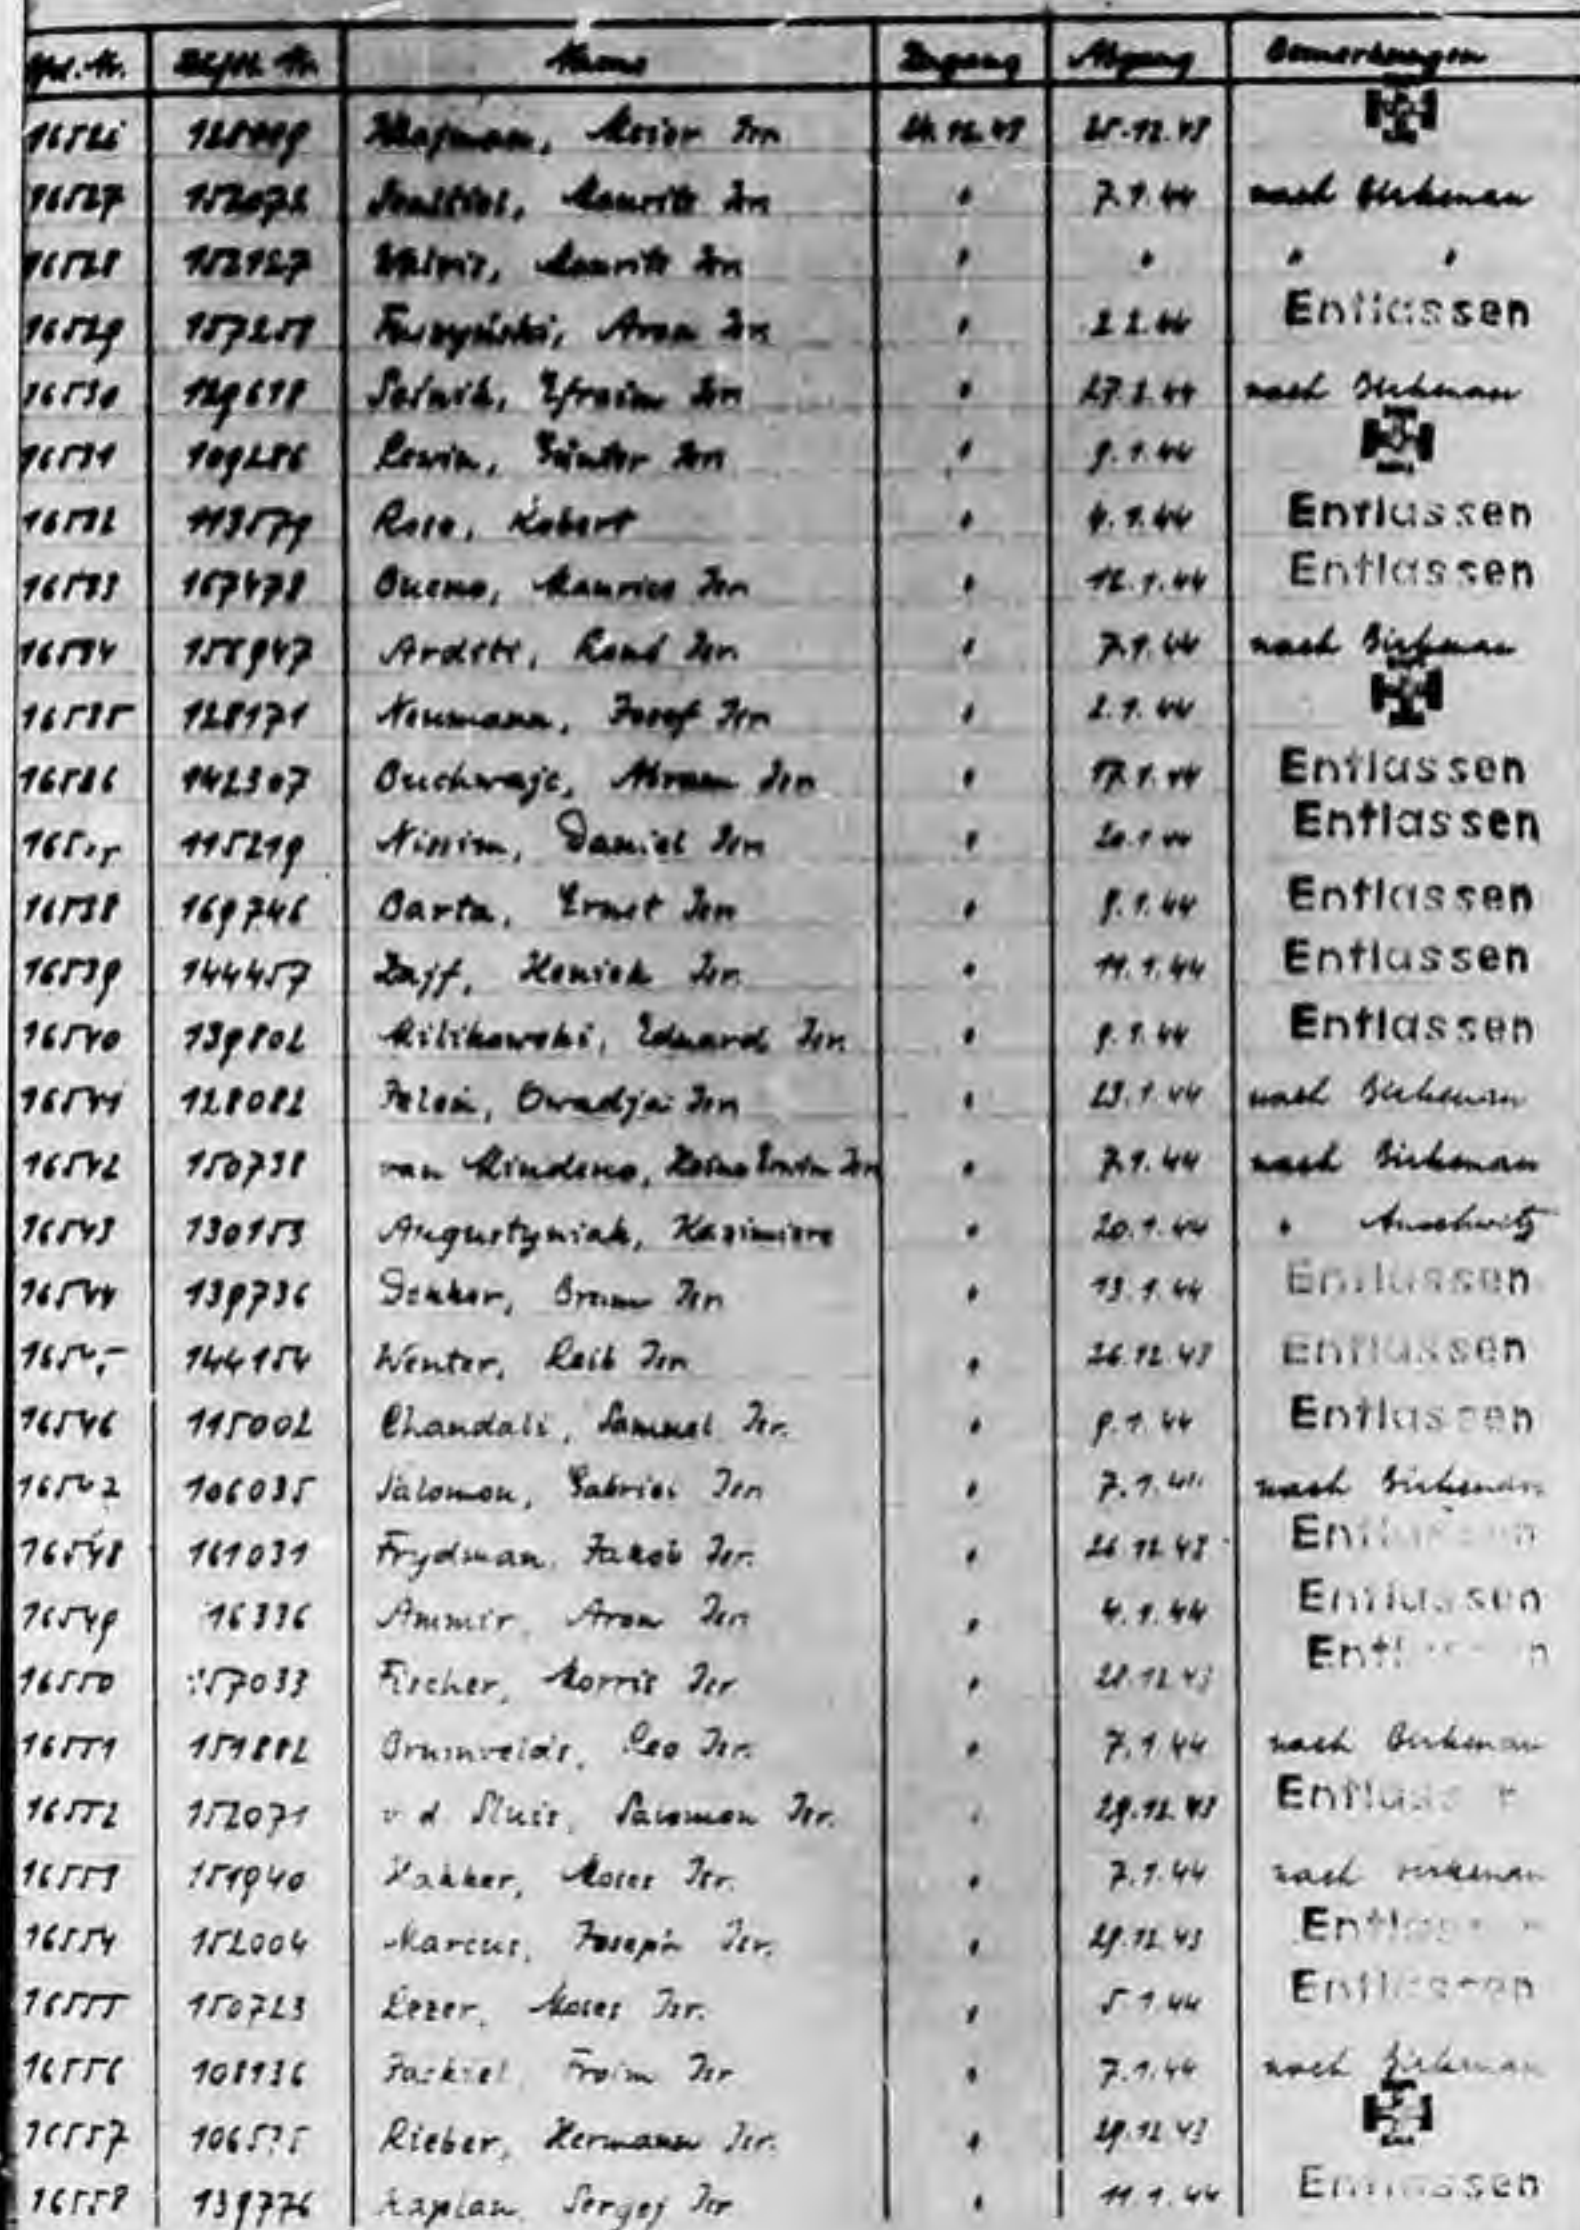 Lfd. Nr. Häftl. Nr. Name Zugang Abgang Bemerkungen
16526 Meier Isr. 24.12.43 25.12.43
16527 152072 Maurits Isr. " 7.1.44 nach Birkenau
16528 152127 Walvis, Maurits Isr. " " " "
16529 157251 Aron Isr. " 2.2.44 Entlassen
16530 129618 Efraim Isr. " 27.2.44 nach Birkenau
16531 109286 Lewin, Günter Isr. " 9.1.44
16532 113579 Rose, Robert " 4.1.44 Entlassen
16533 167478 Bueno, Maurice Isr. " 12.1.44 Entlassen
16534 158947 Arditti, René Isr. " 7.1.44 nach Birkenau
16535 128171 Neumann, Josef Isr. " 2.1.44
16536 142307 Buchwajc, Abram Isr. " 17.1.44 Entlassen
115219 Nissim, Daniel Isr. " 20.1.44 Entlassen
16538 169746 Barta, Ernst Isr. " 9.1.44 Entlassen
16539 144457 Zajf, Heniek Isr. " 11.1.44 Entlassen
16540 139802 Milikowski, Eduard Isr. " 9.1.44 Entlassen
16541 128082 Owadja Isr. " 23.1.44 nach Birkenau
16542 150738 van Mindeno, Heinz Erwin Isr. " 7.1.44 nach Birkenau
16543 130153 Augustyniak, Kazimierz " 20.1.44 " Auschwitz
16544 139736 Denker, Isr. " 13.1.44 Entlassen
144154 Wenter, Leib Isr. " 26.12.43 Entlassen
16546 115002 Chandali, Samuel Isr. " 9.1.44 Entlassen
16547 106035 Salomon, Gabriel Isr. " 7.1.44 nach Birkenau
16548 161031 Frydman, Jakob Isr. " 26.12.43 Entlassen
16549 16336 Ammir, Aron Isr. " 4.1.44 Entlassen
16550 157033 Fischer, Morris Isr. " 28.12.43 Entlassen
16551 151882 Leo Isr. " 7.1.44 nach Birkenau
16552 152071 v. d. Sluis, Salomon Isr. " 29.12.43 Entlassen
16553 151940 Hakker, Moses Isr. " 7.1.44 nach Birkenau
16554 152004 Marcus, Joseph Isr. " 29.12.43 Entlassen
16555 150723 Lezer, Moses Isr. " 5.1.44 Entlassen
16556 108136 Jackiel, Froim Isr. " 7.1.44 nach Birkenau
16557 Rieber, Hermann Isr. " 29.12.43
16558 139776 Kaplan, Sergej Isr. " 11.1.44 Entlassen